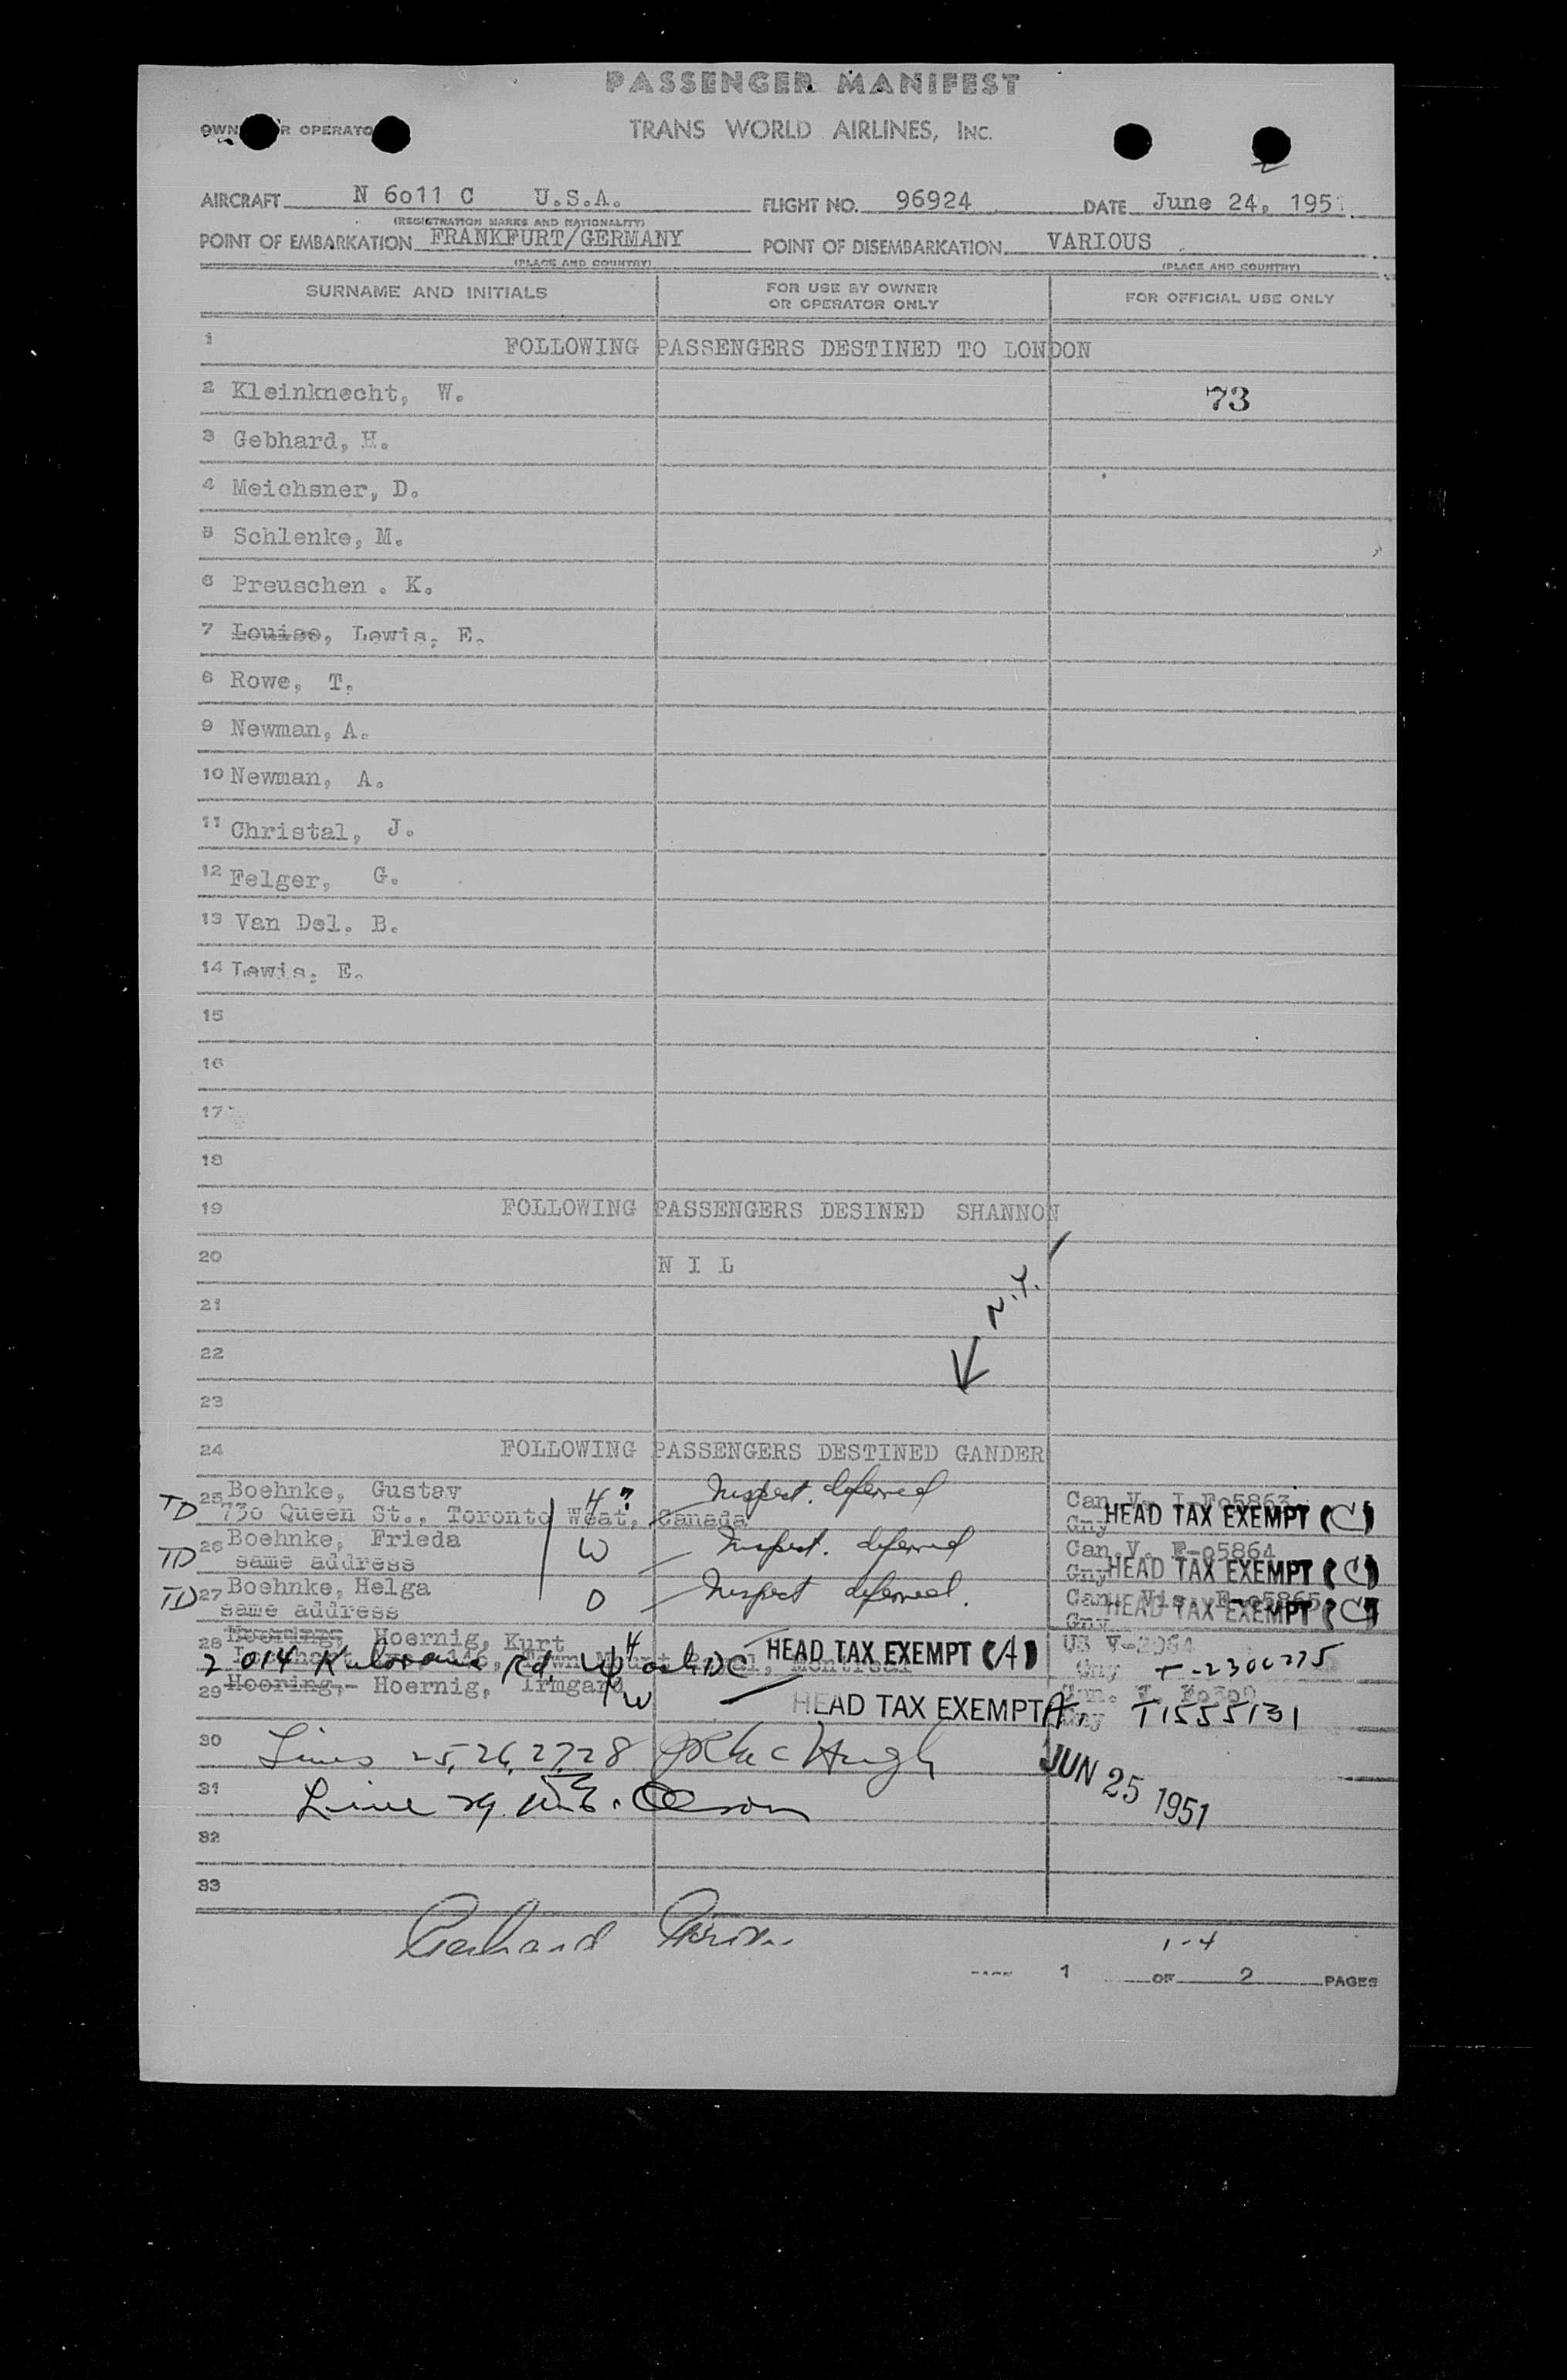 PASSENGER MANIFEST
TRANS WORLD AIRLINES, INC.
AIRCRAFT N 6o11 C U.S.A. FLIGHT NO. 96924 DATE June 24, 195
(REGISTRATION MARKS AND NATIONALITY)
POINT OF EMBARKATION FRANKFURT/GERMANY POINT OF DISEMBARKATION VARIOUS
(PLACE AND COUNTRY) (PLACE AND COUNTRY)
SURNAME AND INITIALS FOR USE BY OWNER OR OPERATOR ONLY FOR OFFICIAL USE ONLY
1 FOLLOWING PASSENGERS DESTINED TO LONDON
2 Kleinknecht, W. 73
3 Gebhard, H.
4 Meichsner, D.
5 Schlenke, M.
6 Preuschen . K.
7 Louise, Lewis, E.
8 Rowe, T.
9 Newman, A.
10 Newman, A.
11 Christal, J.
12 Felger, G.
13 Van Del. B.
14 Lewis. E.
15
16
17
18
19 FOLLOWING PASSENGERS DESINED SHANNON
20 N I L
N.Y.
21
22
23
24 FOLLOWING PASSENGERS DESTINED GANDER
25 Boehnke, Gustav H ? Inspect. deferred
TD 730 Queen St., Toronto West, Canada Gny HEAD TAX EXEMPT (C)
26 Boehnke, Frieda W Inspect. deferred Can.V. F-o5864
TD same address Gny HEAD TAX EXEMPT (C)
TD 27 Boehnke, Helga D Inspect deferred.
same address Gny HEAD TAX EXEMPT (C)
28 Hoernig, Kurt H HEAD TAX EXEMPT (A)
2014 Rd, Wash DC Gny
29 Hooring, Hoernig, Irmgard W HEAD TAX EXEMPT A. T1555131
30 Lines 25, 26, 27, 28
31 Line 29.
JUN 25 1951
32
33
Gerhard
1-4
1 OF 2 PAGES